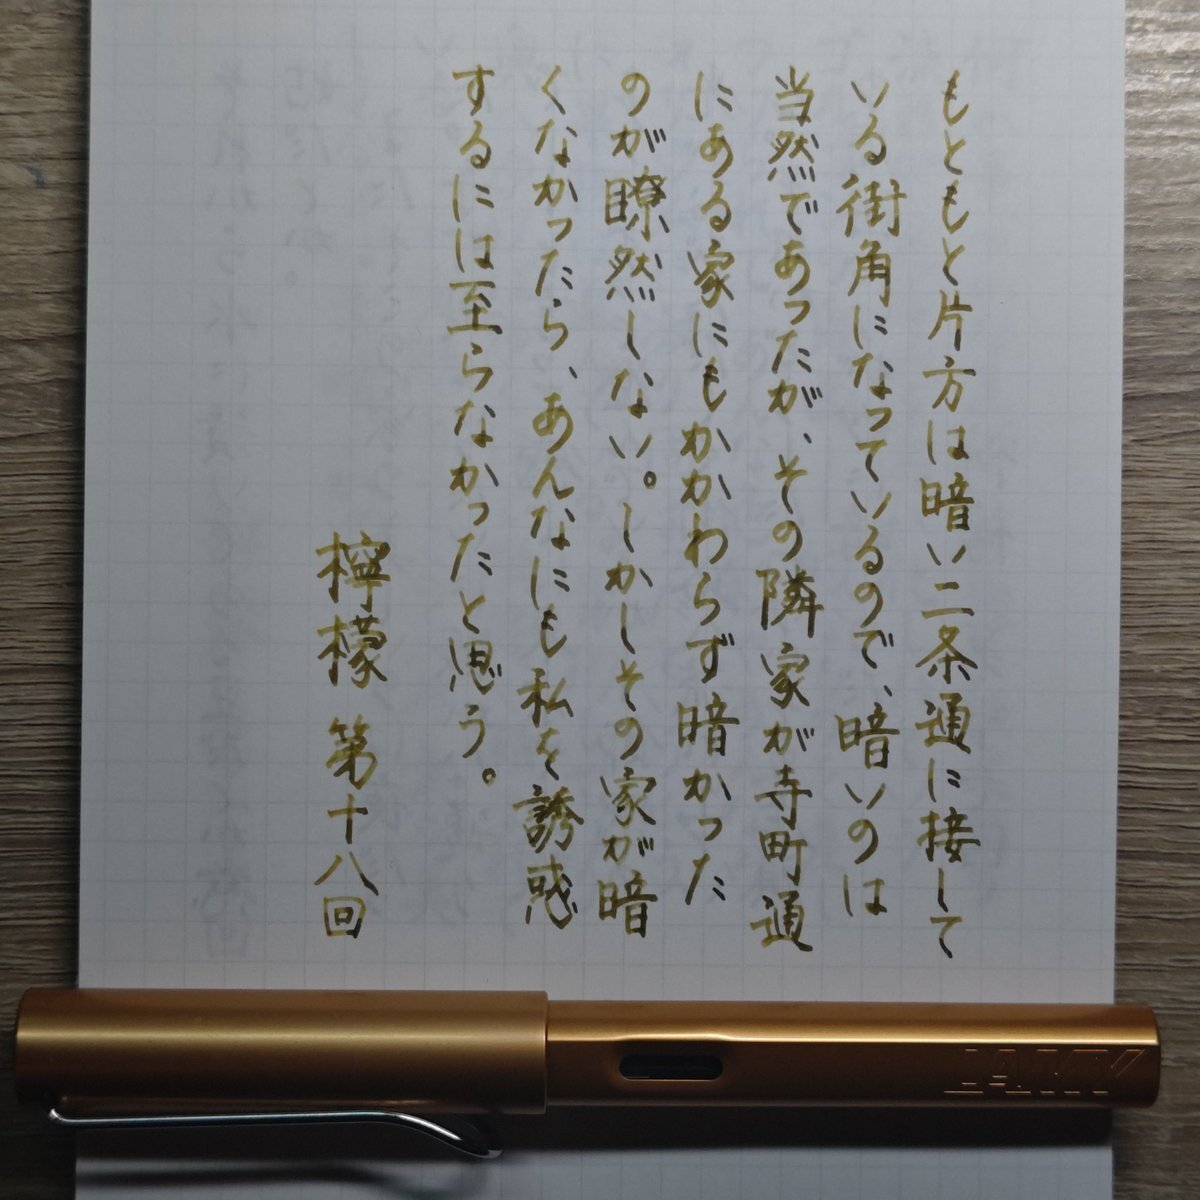 もともと片方は暗い二条通に接して
いる街角になっているので、暗いのは
当然であったが、その隣家が寺町通
にある家にもかかわらず暗かった
のが瞭然しない。しかしその家が暗
くなかったら、あんなにも私を誘惑
するには至らなかったと思う。
檸檬 第十八回
LAMY